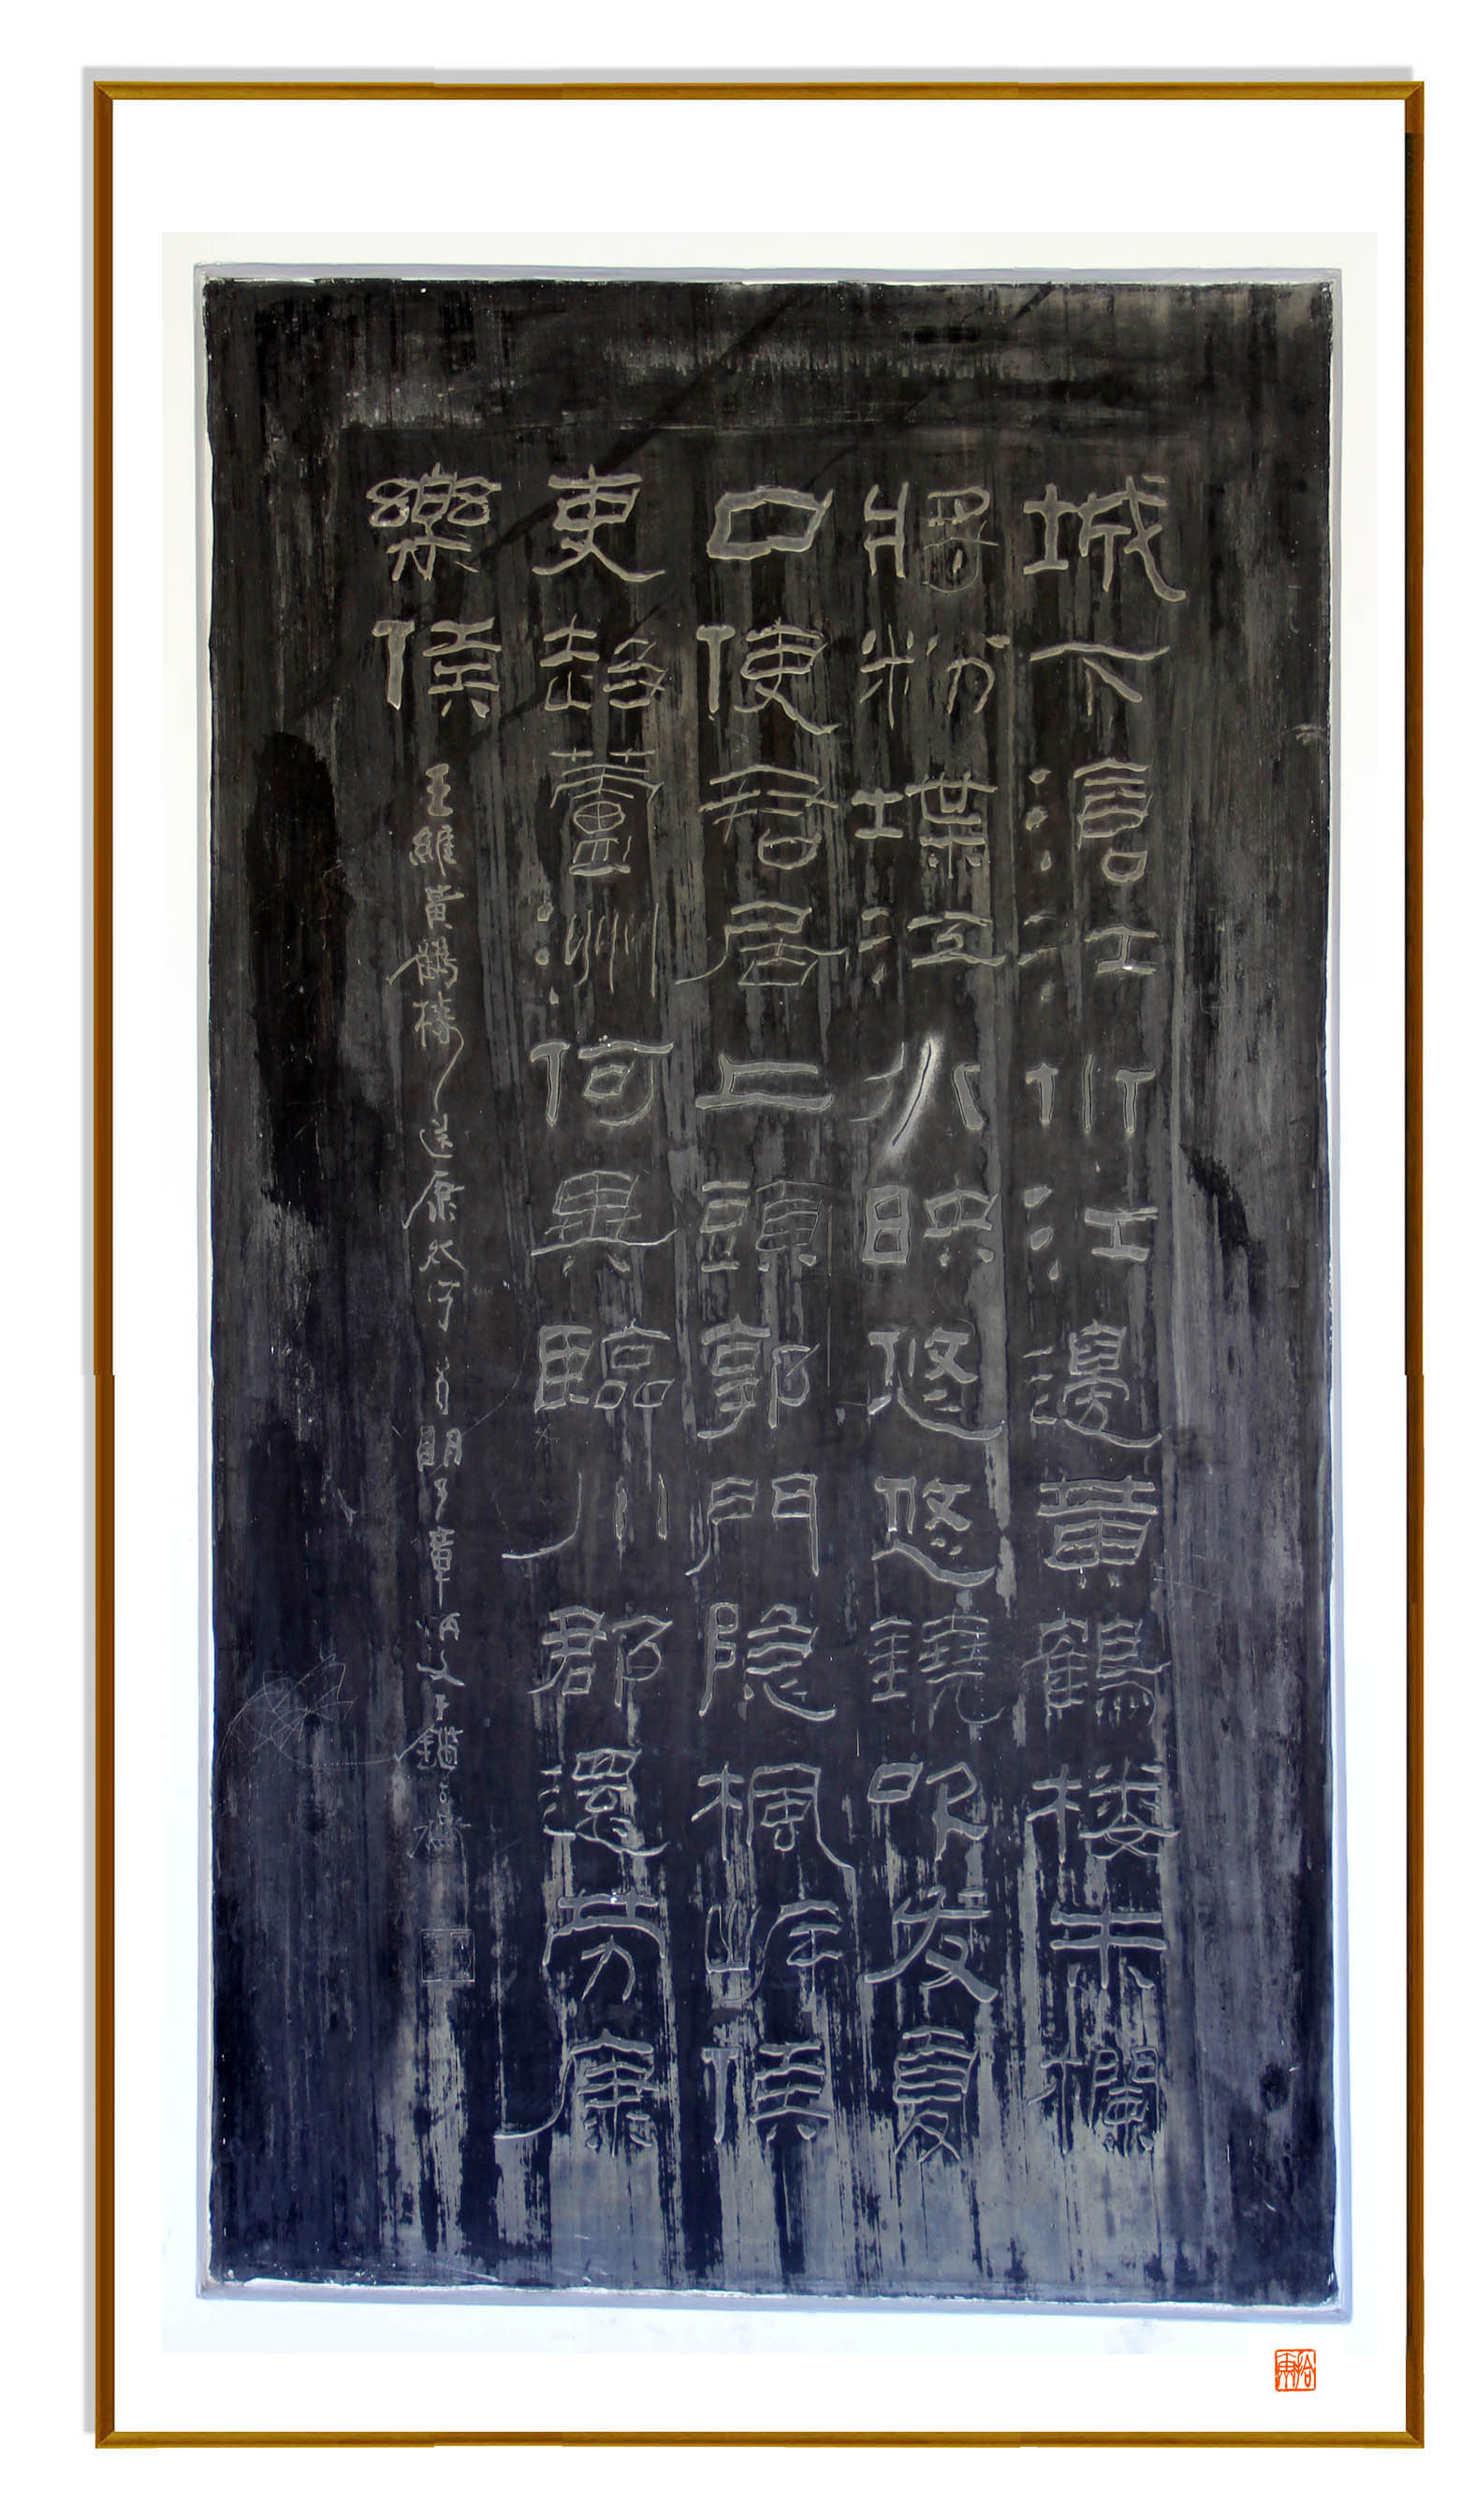 城下滄江水江邊黃鶴楼朱欄
將粉堞江水映悠悠鐃吹发夏
口使君居上頭郭門隐楓岸候
吏趍蘆洲何異臨川郡還劳康
樂侯
王維黃鶴樓送康太守